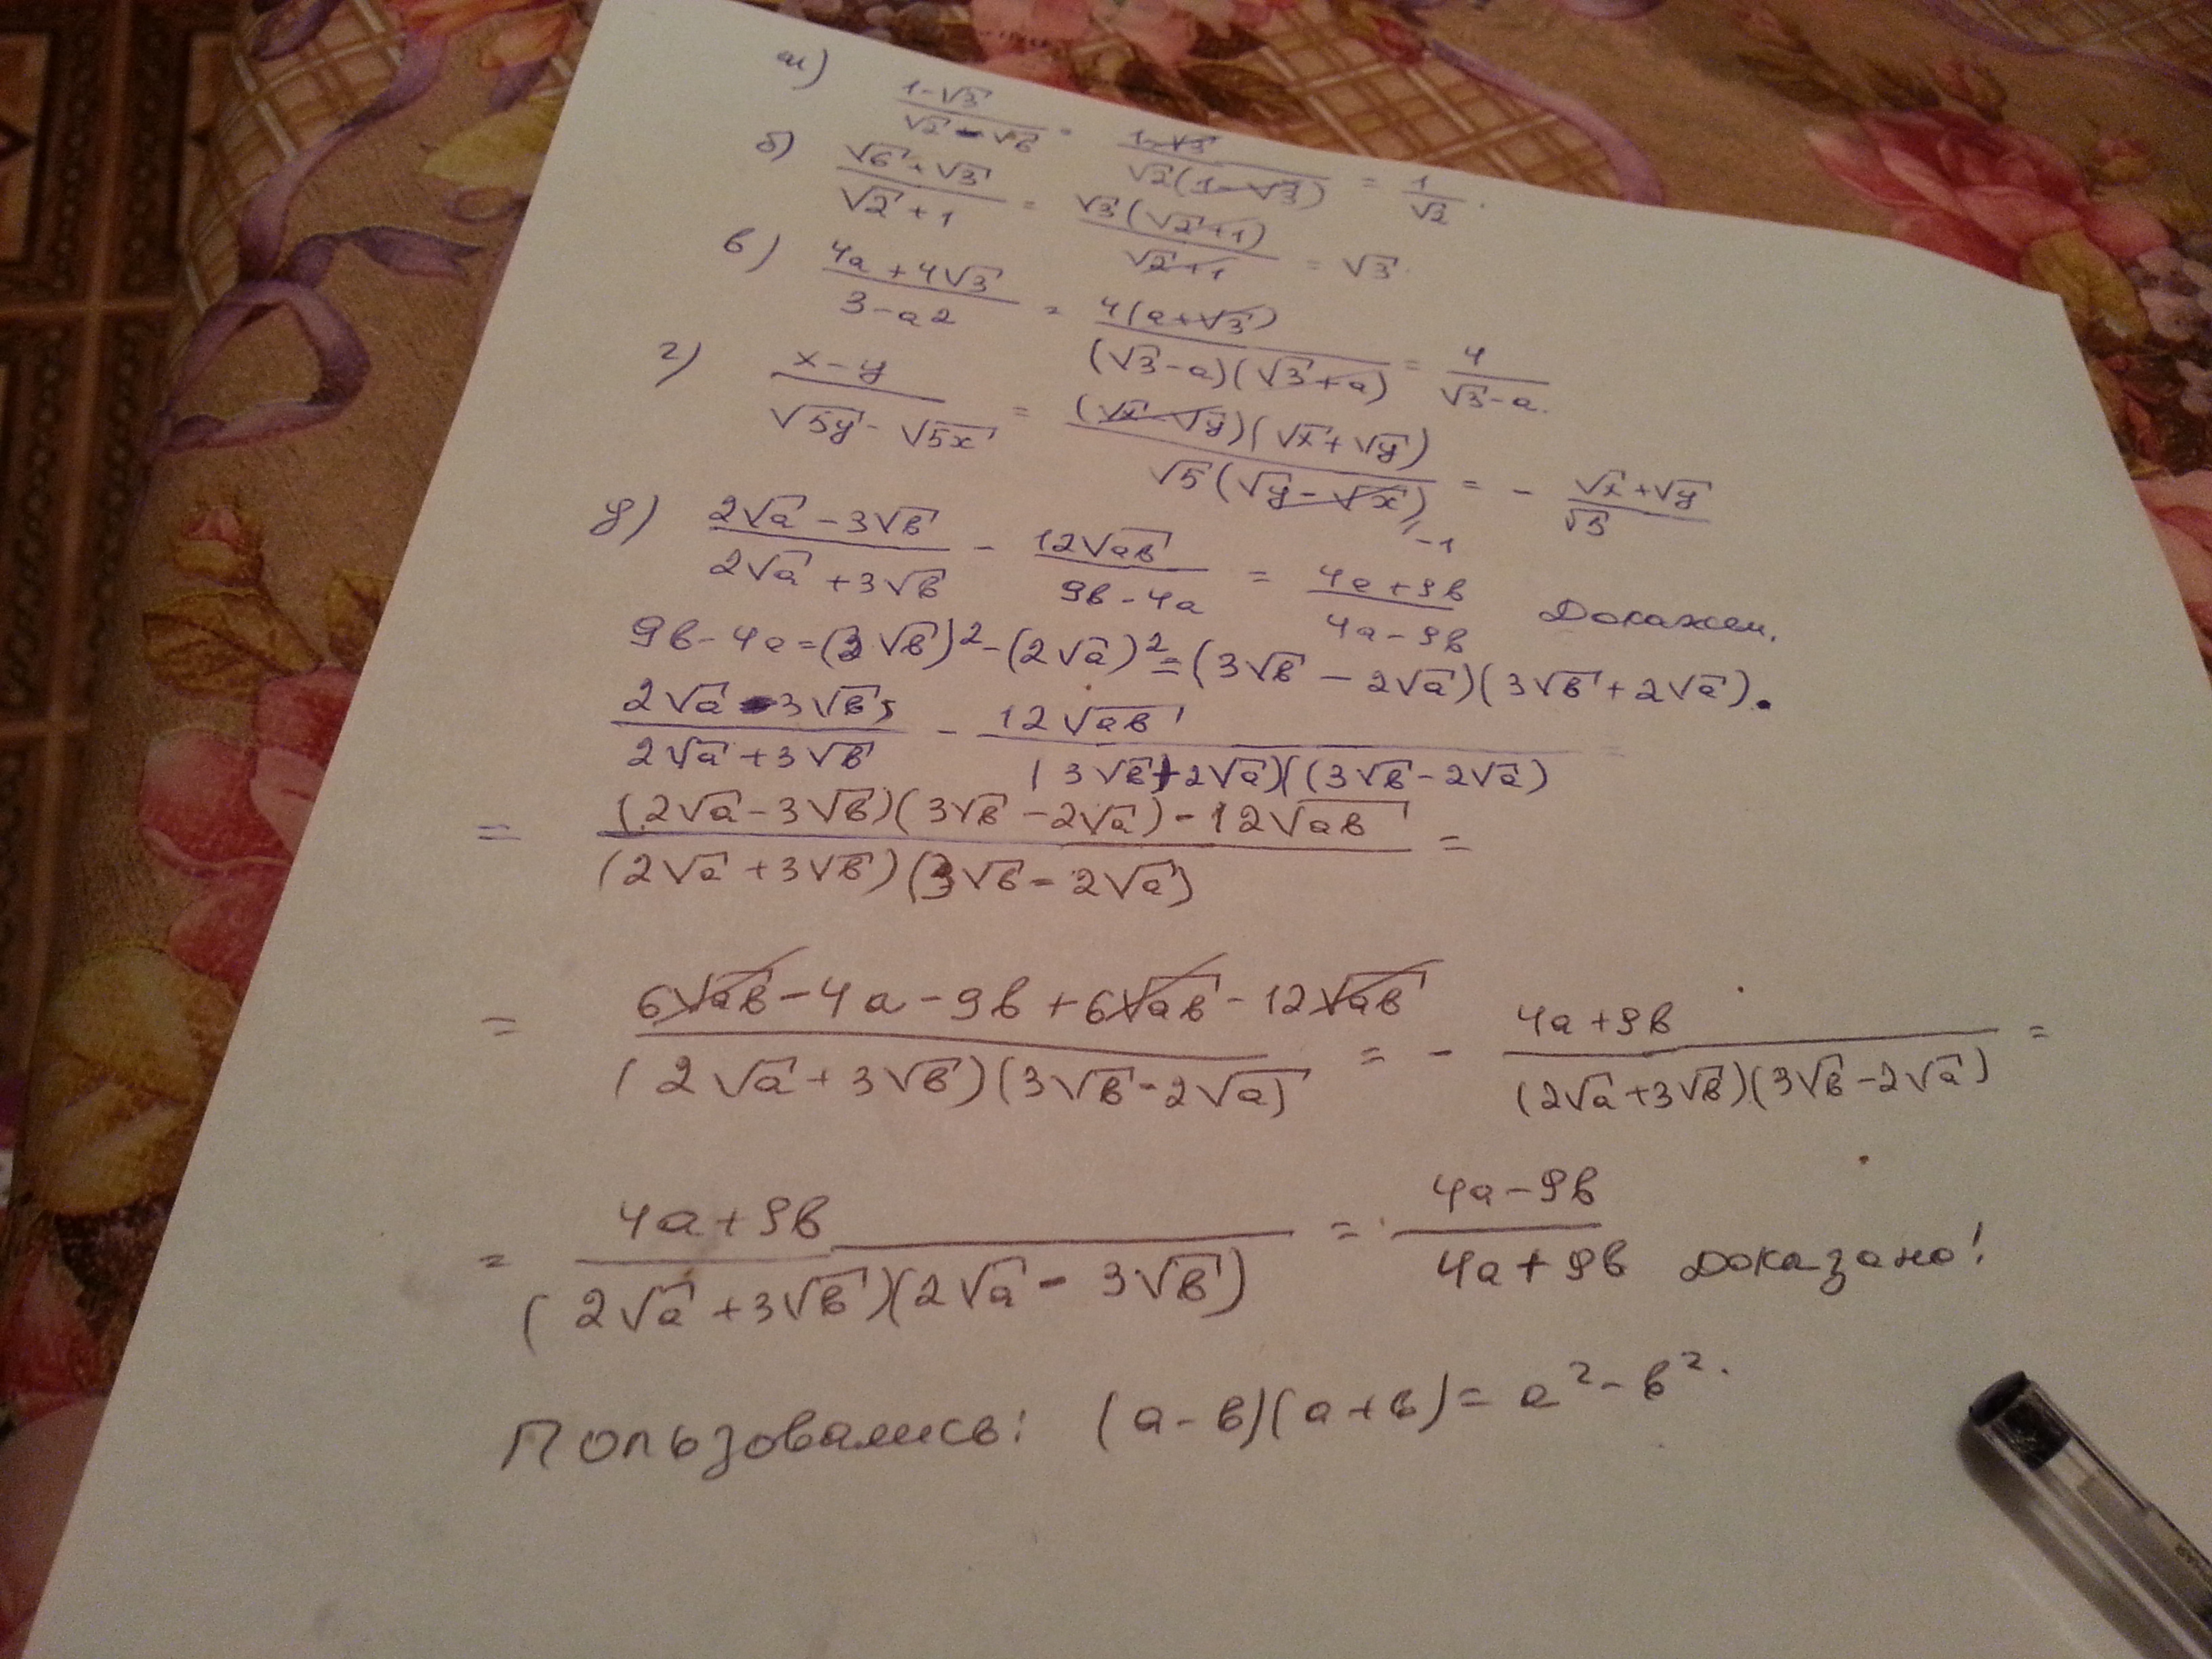 а) (1-√3)/(√2-√6) = (1-√3)/(√2(1-√3)) = 1/√2.
б) (√6+√3)/(√2+1) = (√3(√2+1))/(√2+1) = √3.
в) (4a+4√3)/(3-a2) = (4(a+√3))/((√3-a)(√3+a)) = 4/(√3-a).
г) (x-y)/(√5y-√5x) = ((√x-√y)(√x+√y))/(√5(√y-√x)) = - (√x+√y)/√5
-1
д) (2√a-3√b)/(2√a+3√b) - (12√ab)/(9b-4a) = (4a+9b)/(4a-9b) Докажем.
9b-4a=(3√b)²-(2√a)²=(3√b-2√a)(3√b+2√a).
(2√a-3√b)/(2√a+3√b) - (12√ab)/((3√b+2√a)(3√b-2√a)) =
= ((2√a-3√b)(3√b-2√a)-12√ab)/((2√a+3√b)(3√b-2√a)) =
= (6√ab-4a-9b+6√ab-12√ab)/((2√a+3√b)(3√b-2√a)) = - (4a+9b)/((2√a+3√b)(3√b-2√a)) =
= (4a+9b)/((2√a+3√b)(2√a-3√b)) = (4a-9b)/(4a+9b) Доказано!
Пользовались: (a-b)(a+b)=a²-b².